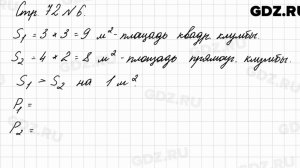 GDZ.RU
Стр. 72 № 6.
S₁ = 3 * 3 = 9 м² - площадь квадр. клумбы.
S₂ = 4 * 2 = 8 м² - площадь прямоуг. клумбы.
S₁ > S₂ на 1 м².
P₁ =
P₂ =